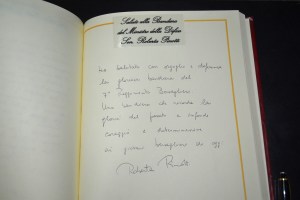 Saluto alla Bandiera
del Ministro della Difesa
Sen. Roberta Pinotti
Ho salutato con orgoglio e deferenza
la gloriosa bandiera del
7° Reggimento Bersaglieri
Una bandiera che ricorda la
gloria del passato e infonde
coraggio e determinazione
ai giovani bersaglieri di oggi
Roberta Pinotti